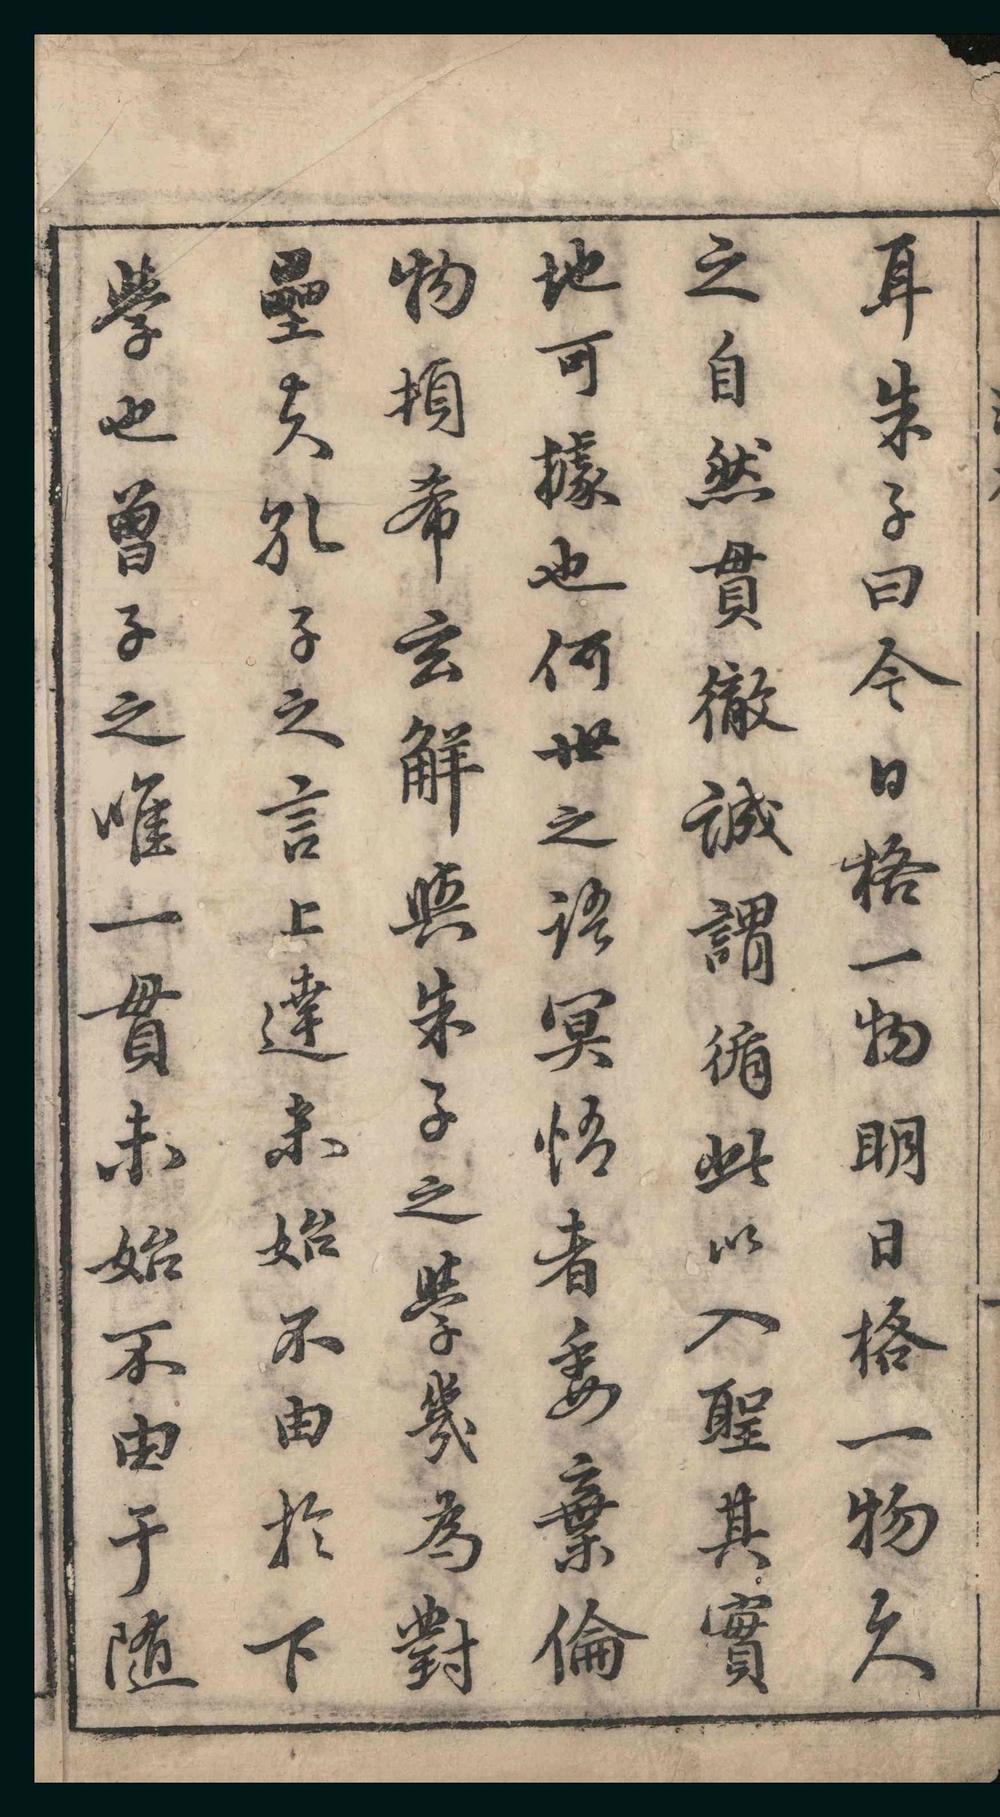 耳朱子曰今日格一物明日格一物久
之自然貫徹誠謂循此以入聖其實
地可據也何世之語冥悟者委棄倫
物項希玄解與朱子之學幾為對
壘夫孔子之言上達未始不由於下
學也曾子之唯一貫未始不由于随